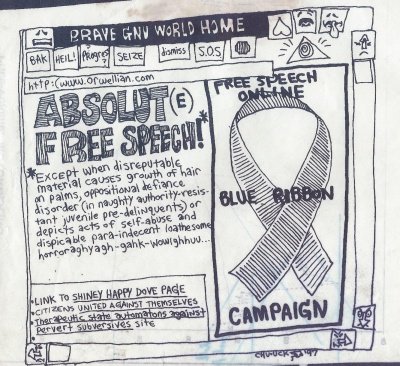 BRAVE GNU WORLD HOME
BAK HEIL! Progres? SEIZE dismiss S.O.S
http://www.orwellian.com
ABSOLUT(E)
FREE SPEECH!*
*EXCEPT when disreputable
material causes growth of hair
on palms, oppositional defiance
disorder (in naughty authority-resis-
tant juvenile pre-delinquents) or
depicts acts of self-abuse and
dispicable para-indecent loathesome
horroraghyagh-gahk-wowighhuu...
•LINK TO SHINEY HAPPY DOVE PAGE
•CITIZENS UNITED AGAINST THEMSELVES
•Therapeutic state automatons against
pervert subversives site
FREE SPEECH
ONLINE
BLUE RIBBON
CAMPAIGN
'97